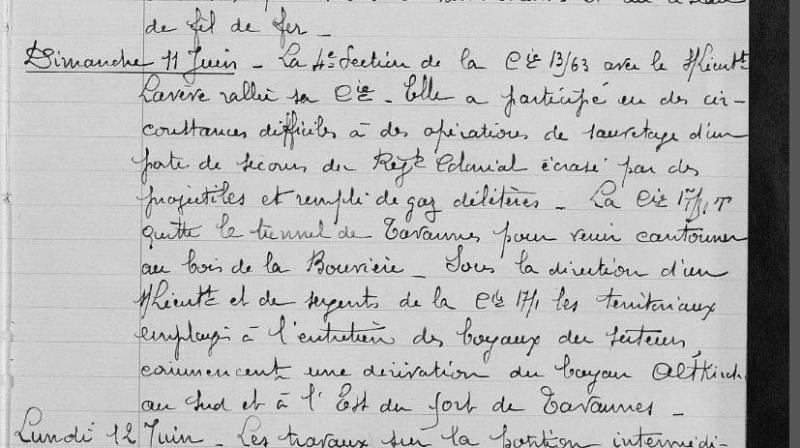 de fil de fer _
Dimanche 11 Juin _ La 4e Section de la Cie 13/63 avec le s/Lieutt
Lavère rallié sa Cie _ Elle a participé en des cir-
constances difficiles à des opérations de sauvetage d'un
poste de secours du Régt Colonial écrasé par des
projectiles et rempli de gaz délétères _ La Cie
quitte le tunnel de Tavannes pour venir cantonner
au bois de la Bouvière _ Sous la direction d'un
s/Lieutt et de sergents de la Cie 17/1 les territoriaux
employés à l'entretien des boyaux du secteur,
commencent une dérivation du boyau Altkirch
au Sud et à l'Est du fort de Tavannes _
Lundi 12 Juin _ Les travaux sur la position intermédi-